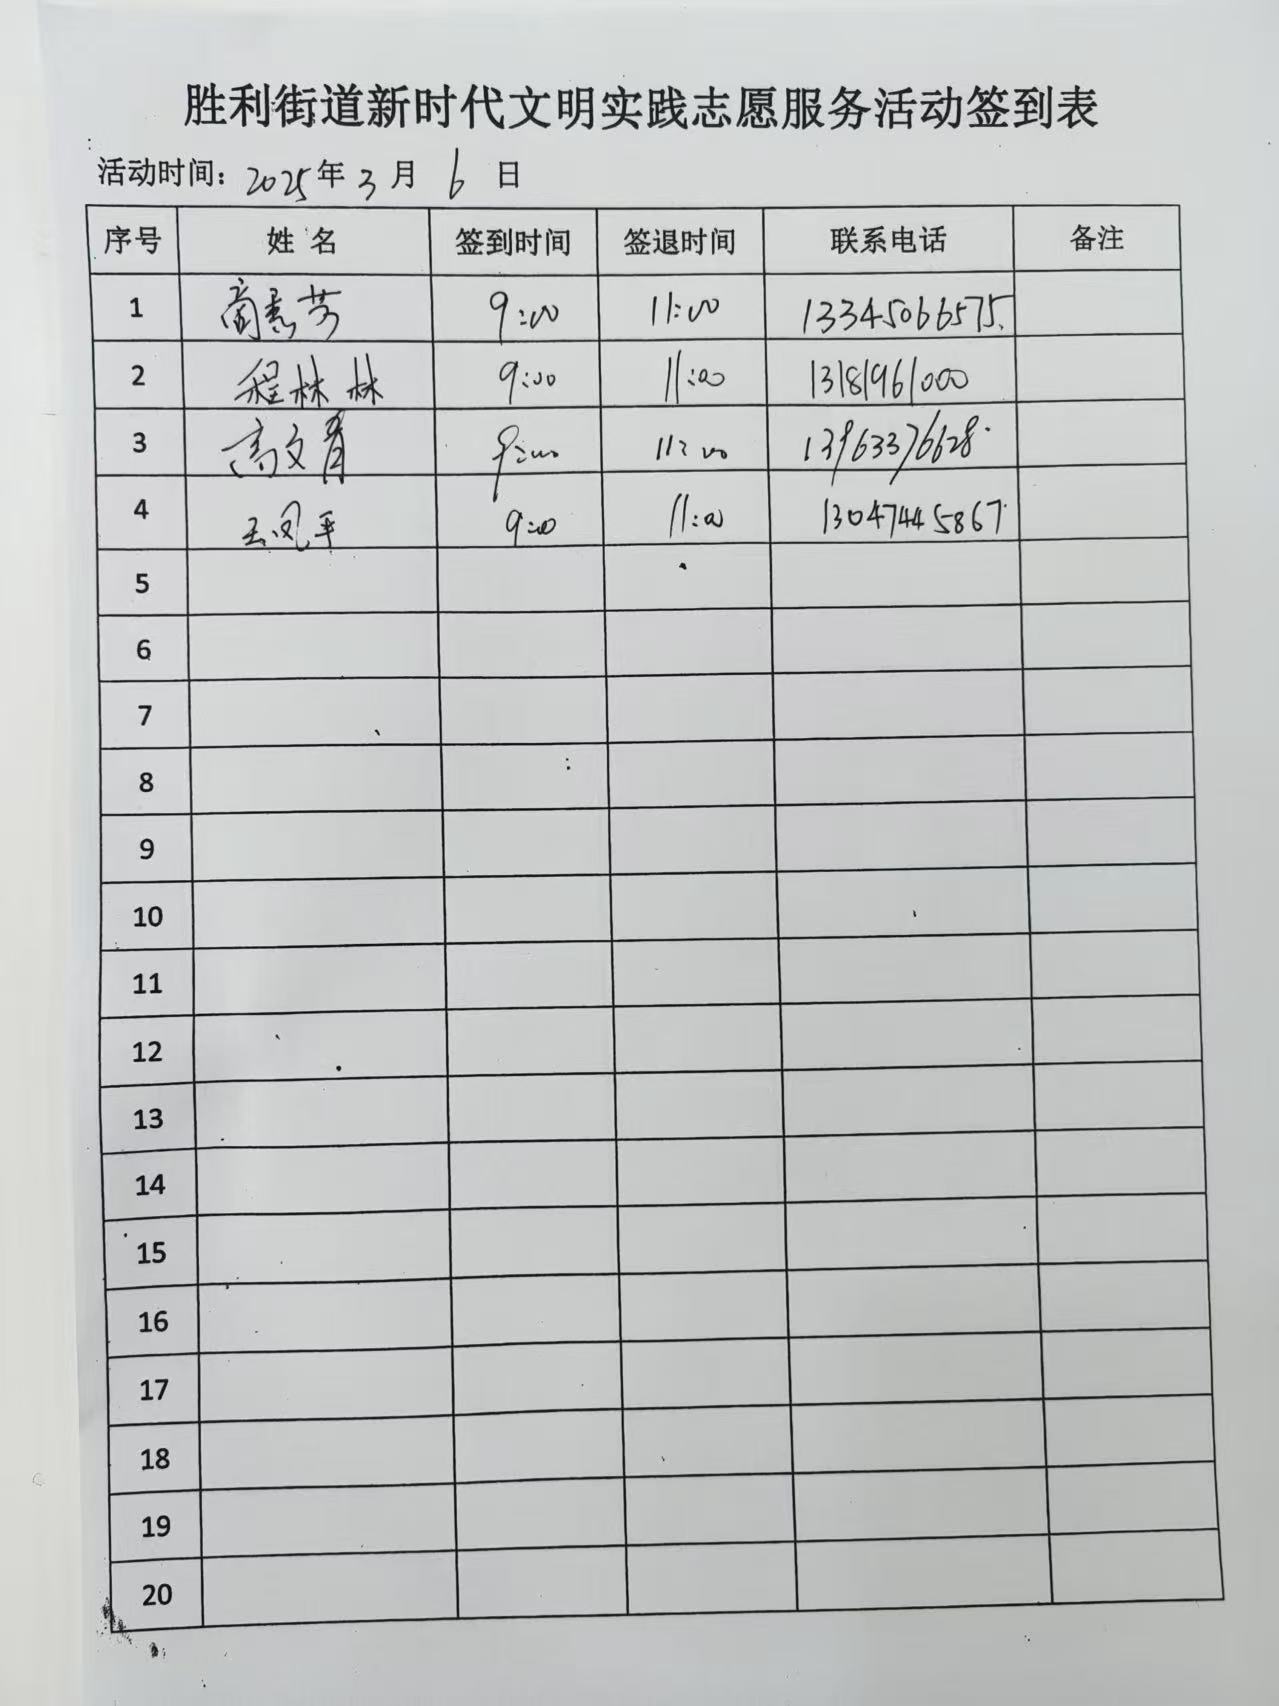 胜利街道新时代文明实践志愿服务活动签到表
活动时间：2025年3月6日
序号 姓 名 签到时间 签退时间 联系电话 备注
1 9:00 11:00 13345066575
2 程林林 9:00 11:00 13181961000
3 高文青 9:00 11:00 13963376628
4 王凤平 9:00 11:00 13047445867
5
6
7
8
9
10
11
12
13
14
15
16
17
18
19
20